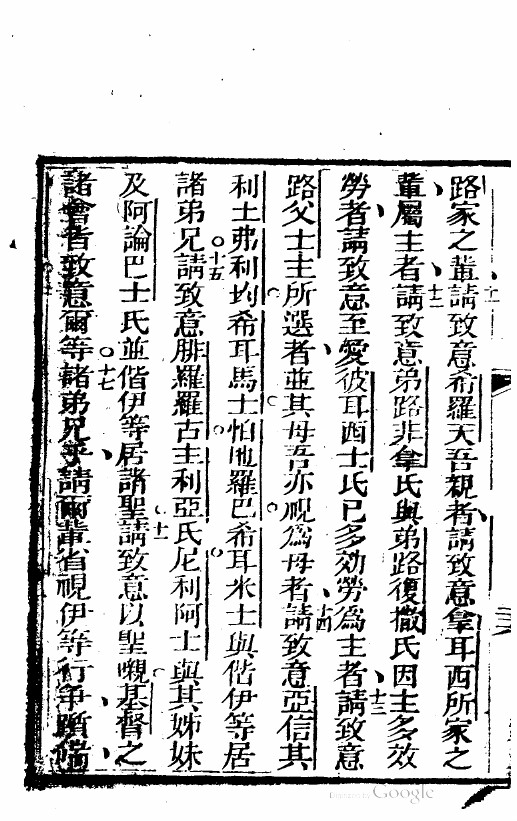 路家之輩請致意希羅天吾親者請致意拿耳西所家之
輩屬主者十二請致意弟路非拿氏與弟路復撒氏因主多效
勞者請致意至愛彼耳西士氏已多効勞為主者十三請致意
路父士主所選者並其母吾亦視為母者十四請致意亞信其
利土弗利均希耳馬士怕地羅巴希耳米士與偕伊等居
諸弟兄十五請致意腓羅羅古主利亞氏尼利阿士與其姊妹
及阿論巴士氏並偕伊等居諸聖請致意以聖嚫基督之
諸會皆致意爾等十七諸弟兄乎請爾輩省視伊等行爭
Digitized by Google